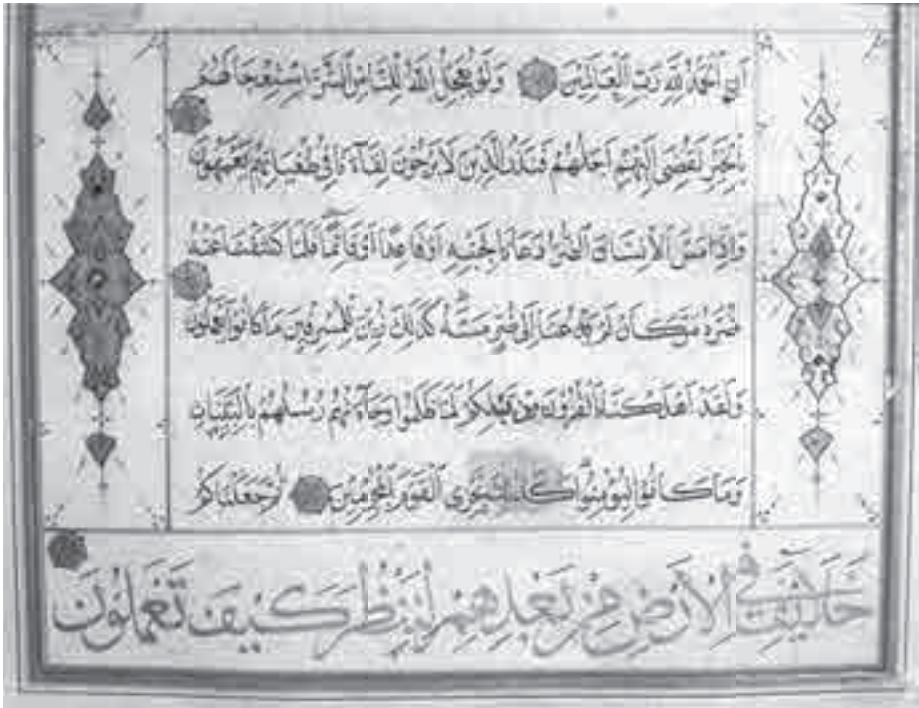 اَنِ الْحَمْدُ لِلَّهِ رَبِّ الْعَالَمِينَ وَلَوْ يُعَجِّلُ اللَّهُ لِلنَّاسِ الشَّرَّ اسْتِعْجَالَهُمْ
بِالْخَيْرِ لَقُضِيَ اِلَيْهِمْ اَجَلُهُمْ فَنَذَرُ الَّذِينَ لَا يَرْجُونَ لِقَآءَنَا فِي طُغْيَانِهِمْ يَعْمَهُونَ
وَاِذَا مَسَّ الْاِنْسَانَ الضُّرُّ دَعَانَا لِجَنْبِهِ اَوْ قَاعِدًا اَوْ قَآئِمًا فَلَمَّا كَشَفْنَا عَنْهُ
ضُرَّهُ مَرَّ كَاَنْ لَمْ يَدْعُنَا اِلَى ضُرٍّ مَسَّهُ كَذَلِكَ زُيِّنَ لِلْمُسْرِفِينَ مَا كَانُوا يَعْمَلُونَ
وَلَقَدْ اَهْلَكْنَا الْقُرُونَ مِنْ قَبْلِكُمْ لَمَّا ظَلَمُوا وَجَآءَتْهُمْ رُسُلُهُمْ بِالْبَيِّنَاتِ
وَمَا كَانُوا لِيُؤْمِنُوا كَذَلِكَ نَجْزِي الْقَوْمَ الْمُجْرِمِينَ ثُمَّ جَعَلْنَاكُمْ
خَلَآئِفَ فِي الْاَرْضِ مِنْ بَعْدِهِمْ لِنَنْظُرَ كَيْفَ تَعْمَلُونَ